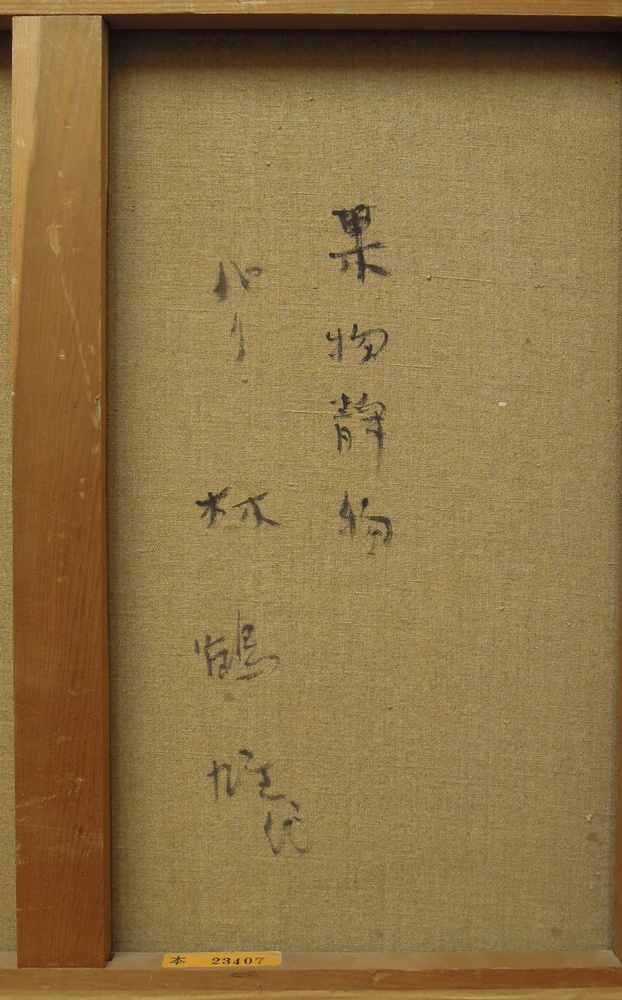 果物静物
パリ 林 鶴雄
本 23407